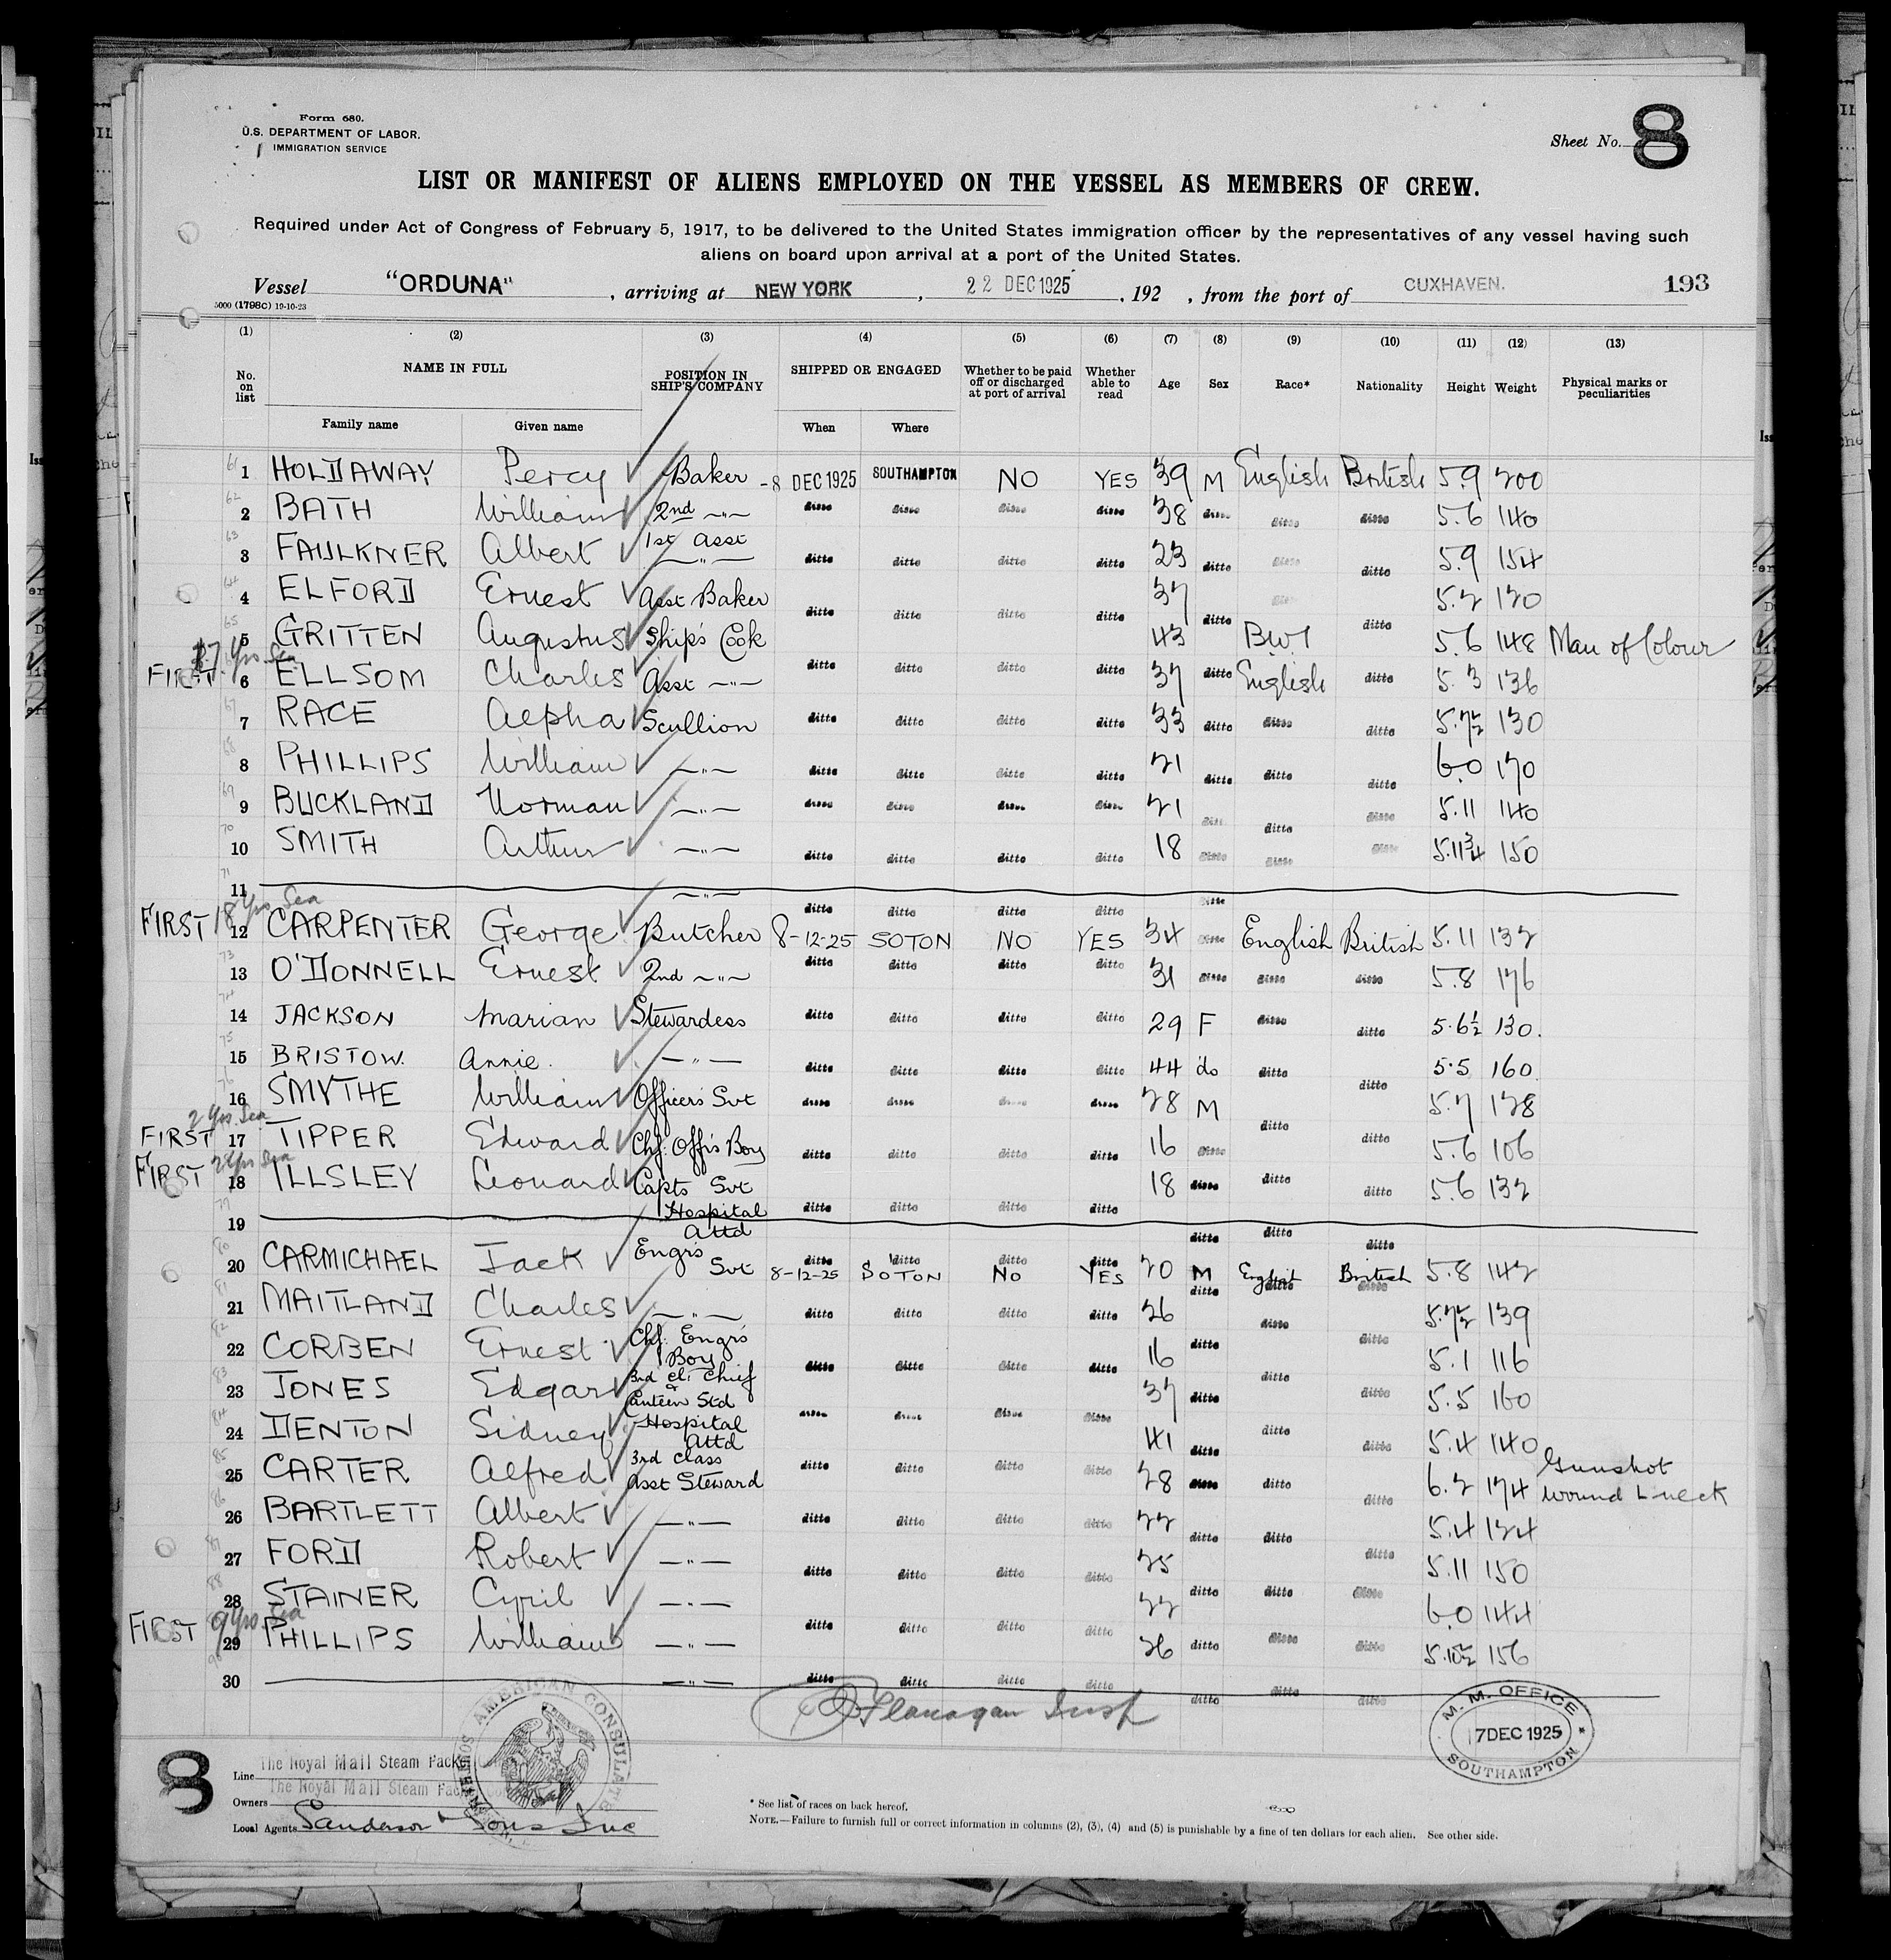 Form 680.
U.S. DEPARTMENT OF LABOR.
IMMIGRATION SERVICE
Sheet No. 8
LIST OR MANIFEST OF ALIENS EMPLOYED ON THE VESSEL AS MEMBERS OF CREW.
Required under Act of Congress of February 5, 1917, to be delivered to the United States immigration officer by the representatives of any vessel having such
aliens on board upon arrival at a port of the United States.
Vessel "ORDUNA", arriving at NEW YORK, 22 DEC 1925, 192 , from the port of CUXHAVEN. 193
5000 (1798C) 19-10-23
(1) (2) (3) (4) (5) (6) (7) (8) (9) (10) (11) (12) (13)
No. on list NAME IN FULL POSITION IN SHIP'S COMPANY SHIPPED OR ENGAGED Whether to be paid off or discharged at port of arrival Whether able to read Age Sex Race* Nationality Height Weight Physical marks or peculiarities
Family name Given name When Where
61 1 HOLDAWAY Percy Baker -8 DEC 1925 SOUTHAMPTON NO YES 39 M English British 5.9 200
62 2 BATH William 2nd -"- ditto ditto ditto ditto 38 ditto ditto ditto 5.6 140
63 3 FAULKNER Albert 1st Asst -"- ditto ditto ditto ditto 23 ditto ditto ditto 5.9 154
64 4 ELFORD Ernest Asst Baker ditto ditto ditto ditto 37 ditto ditto 5.2 120
65 5 GRITTEN Augustus Ship's Cook 43 B.W.I 5.6 148 Man of Colour
17 Yrs Sea
FIRST 6 ELLSOM Charles Asst -"- ditto ditto ditto ditto 37 ditto English ditto 5.3 136
67 7 RACE Aepha Scullion ditto ditto ditto ditto 33 ditto ditto ditto 5.7½ 130
68 8 PHILLIPS William -"- ditto ditto ditto ditto 21 ditto ditto ditto 6.0 170
69 9 BUCKLAND Norman -"- ditto ditto ditto ditto 21 ditto ditto ditto 5.11 140
70 10 SMITH Arthur -"- ditto ditto ditto ditto 18 ditto ditto ditto 5.11¾ 150
71 11 -"- ditto ditto ditto ditto ditto
18 Yrs Sea
FIRST 12 CARPENTER George Butcher 8-12-25 SOTON NO YES 34 ditto English British 5.11 132
73 13 O'DONNELL Ernest 2nd -"- ditto ditto ditto ditto 31 ditto ditto ditto 5.8 176
74 14 JACKSON Marian Stewardess ditto ditto ditto ditto 29 F ditto ditto 5.6½ 130.
75 15 BRISTOW. Annie. -"- ditto ditto ditto ditto 44 do ditto ditto 5.5 160
76 16 SMYTHE William Officers Svt ditto ditto ditto ditto 28 M ditto 5.7 128
2 Yrs Sea
FIRST 17 TIPPER Edward Chf. Offrs Boy ditto ditto ditto ditto 16 ditto ditto ditto 5.6 106
2 Yrs Sea
FIRST 18 ILLSLEY Leonard Capts Svt 18 ditto ditto ditto 5.6 132
79 19 Hospital Attd ditto ditto ditto ditto ditto ditto ditto
80 20 CARMICHAEL Jack Engrs Svt ditto ditto ditto ditto
8-12-25 SOTON No YES 20 M English British 5.8 142
81 21 MAITLAND Charles -"- ditto ditto ditto ditto 26 ditto ditto ditto 5.7½ 139
82 22 CORBEN Ernest Chf. Engrs Boy ditto ditto ditto ditto 16 ditto ditto ditto 5.1 116
83 23 JONES Edgar 3rd cl: Chief & Canteen Std ditto ditto ditto ditto 37 ditto ditto ditto 5.5 160
84 24 DENTON Sidney Hospital Attd 41 ditto ditto ditto 5.4 140
85 25 CARTER Alfred 3rd Class Asst Steward ditto ditto ditto ditto 28 ditto ditto ditto 6.2 174 Gunshot wound L neck
86 26 BARTLETT Albert -"- ditto ditto ditto ditto 22 ditto ditto ditto 5.4 124
87 27 FORD Robert -"- ditto ditto ditto ditto 25 ditto 5.11 150
88 28 STAINER Cyril -"- 22 ditto ditto ditto 6.0 144
9 Yrs Sea
FIRST 29 PHILLIPS William -"- ditto ditto ditto ditto 26 ditto ditto ditto 5.10½ 156
90 30 -"- ditto ditto ditto ditto ditto ditto ditto
Flanagan Insp
M. M. OFFICE
17 DEC 1925
SOUTHAMPTON
AMERICAN CONSULATE
8
Line The Royal Mail Steam Packe
Owners The Royal Mail Steam Pac
Local Agents Sanderson & Sons Inc
* See list of races on back hereof.
NOTE.—Failure to furnish full or correct information in columns (2), (3), (4) and (5) is punishable by a fine of ten dollars for each alien. See other side.